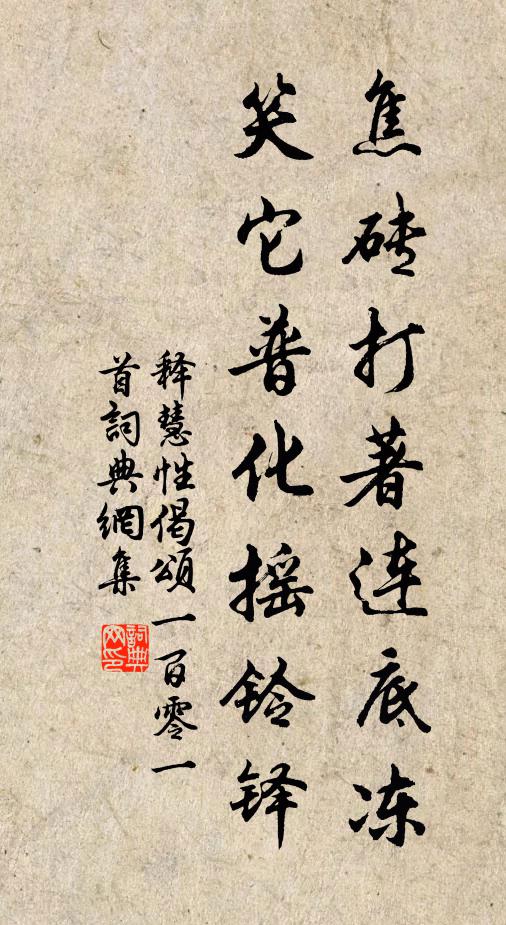 焦砖打著连底冻
笑它普化摇铃铎
释慧性偈頌一百零一
首詞典網集
詞典网印